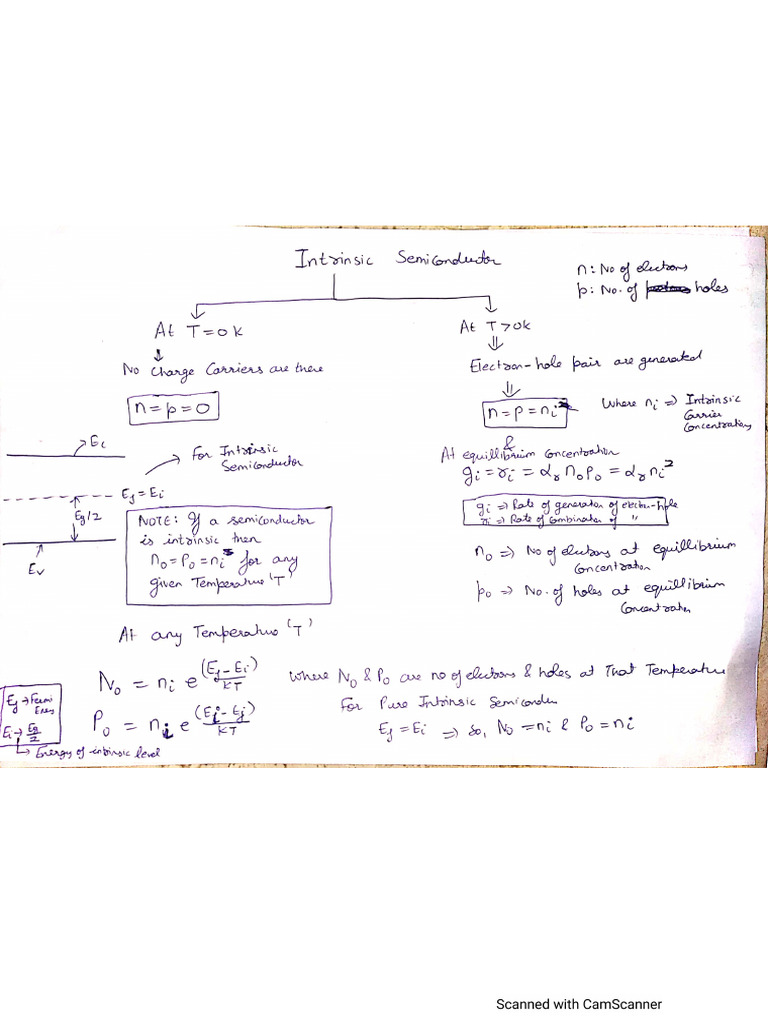 Intrinsic Semiconductor
n: No of electrons
p: No. of holes
At T = 0 K
No charge Carriers are there
n = p = 0
At T > 0 K
Electron-hole pair are generated
n = p = ni
where ni => Intrinsic
Carrier
Concentrations
&
At equillibrium concentration
gi = ri = αr n0 p0 = αr ni²
gi => Rate of generation of electron-hole
ri => Rate of combination of "
n0 => No of electrons at equillibrium
Concentration
p0 => No. of holes at equillibrium
Concentration
Ec
For Intrinsic
Semiconductor
Ef = Ei
Eg/2
Ev
NOTE: If a semiconductor
is intrinsic then
n0 = P0 = ni for any
given Temperature 'T'
At any Temperature 'T'
N0 = ni e (Ef - Ei)/KT
where N0 & P0 are no of electrons & holes at That Temperature
P0 = ni e (Ei - Ef)/KT
For Pure Intrinsic
Ef = Ei => so, N0 = ni & P0 = ni
Ef → Fermi
Ei → Eg/2
→ Energy of intrinsic level
Scanned with CamScanner